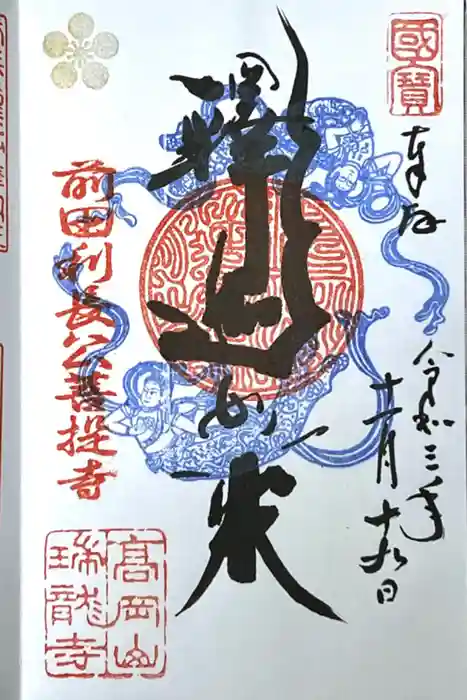 國寶
奉拝
令和三年
十一月十九日
釋迦如来
前田利長公菩提寺
高岡山
瑞龍寺